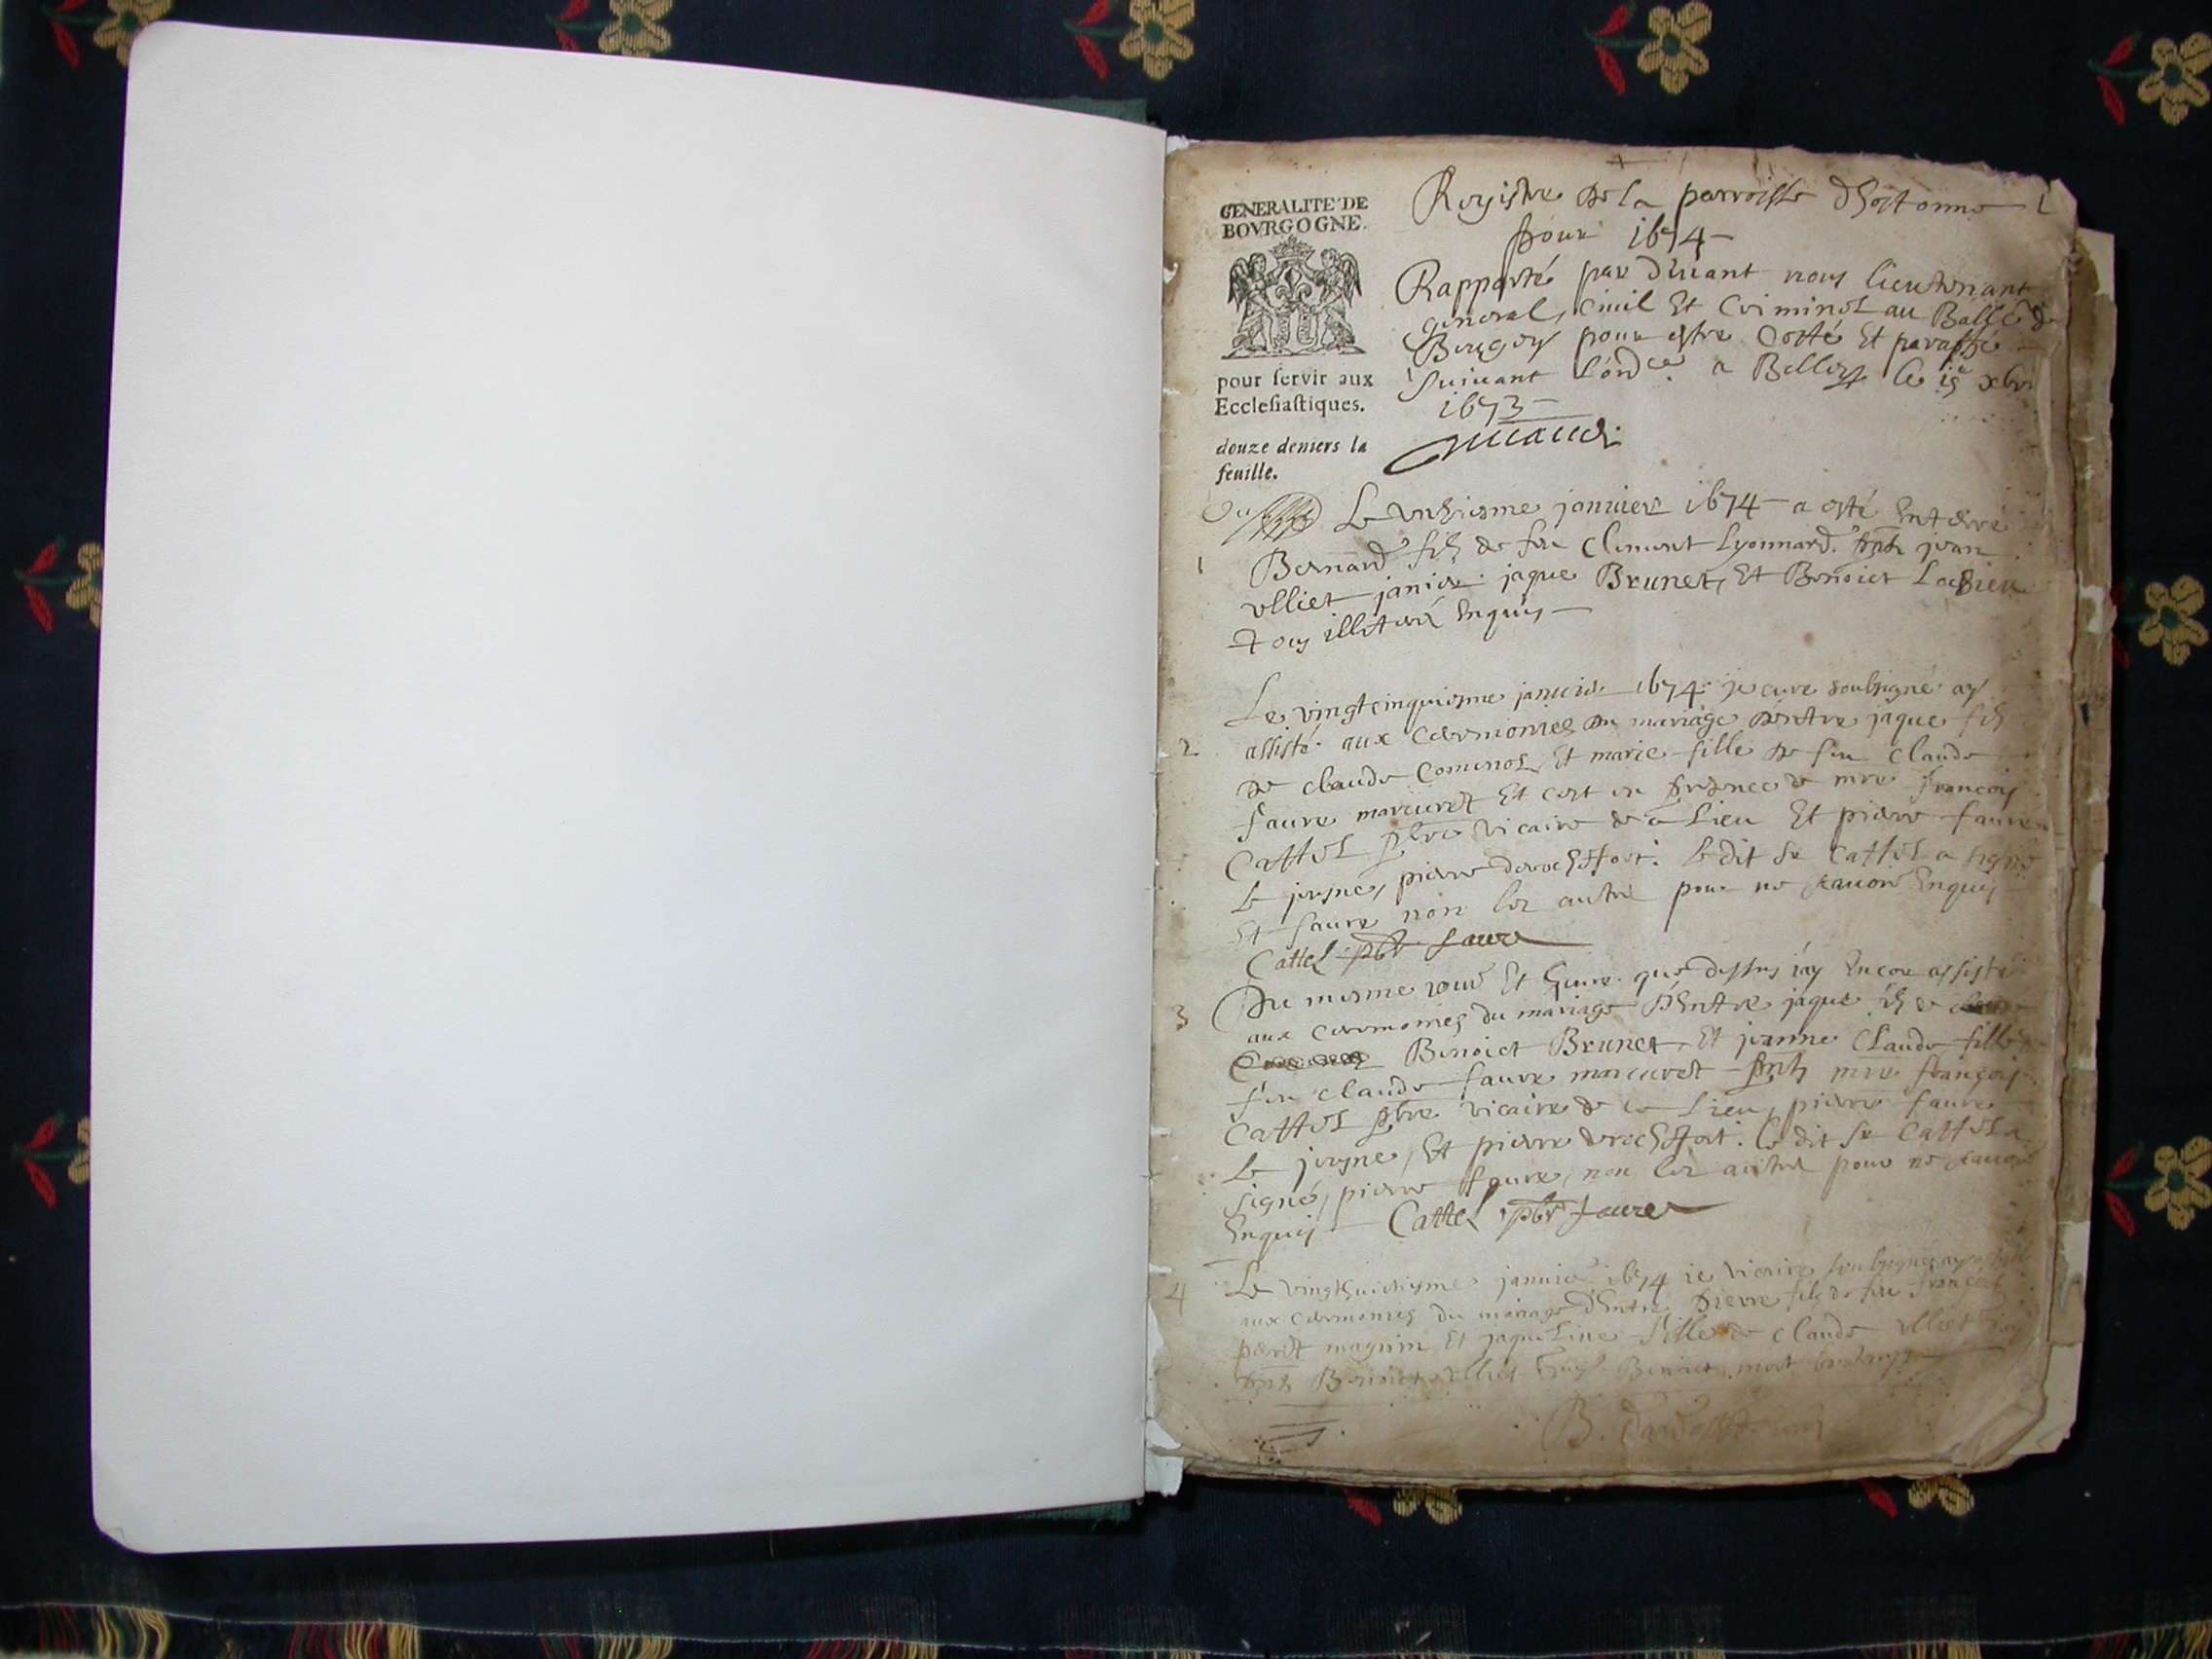 GENERALITE DE
BOVRGOGNE.
pour ſervir aux
Eccleſiaſtiques.
douze deniers la
feuille.
Registre de la parroisse dhostonne 1
pour 1674
Rapporté par devant nous lieutenant
general, civil Et Criminel au Balle de
Bugey pour estre Cotté Et paraffé
suivant l'ordce a Belley le xbre
1673
Le unziesme janvier 1674 a esté Enterré
1 Bernard filz de feu Clement Lyonnard. pnts jean
ulliet janier jaque Brunet, Et Benoict
tous illiteré Enquis
Le vingtcinquiesme janvier 1674 je curé soubsigné ay
2 assisté aux ceremonies du mariage dentre jaque filz
de claude Cominol Et marie fille de feu claude
faure marcuret Et cest en presence de mre françois
Cattel pbre vicaire de ce Lieu Et pierre faure
le jeusne, pierre derochffort. Le dit Sr Cattel a signé
Et faure non les autre pour ne scavoir Enquis
Cattel pbr faure
3 Du mesme jour Et heure que dessus j'ay Encor assisté
aux ceremonies du mariage d'Entre jaque filz de
Benoict Brunet, Et jeanne Claude fille
feu claude faure marcuret pnts mre françois
Cattel pbre vicaire de ce Lieu, pierre faure
le jeusne, Et pierre derochffort. le dit Sr Cattel a
signé, pierre faure, non les autre pour ne scavoir
Enquis Cattel pbr faure
4 Le vingthuictiesme janvier 1674 je vicaire soubsigné ay
aux ceremonies du mariage d'Entre pierre filz de feu françois
perret magnin Et jaqueline fille de claude ulliet
pnts Benoict ulliet Benoict
B.